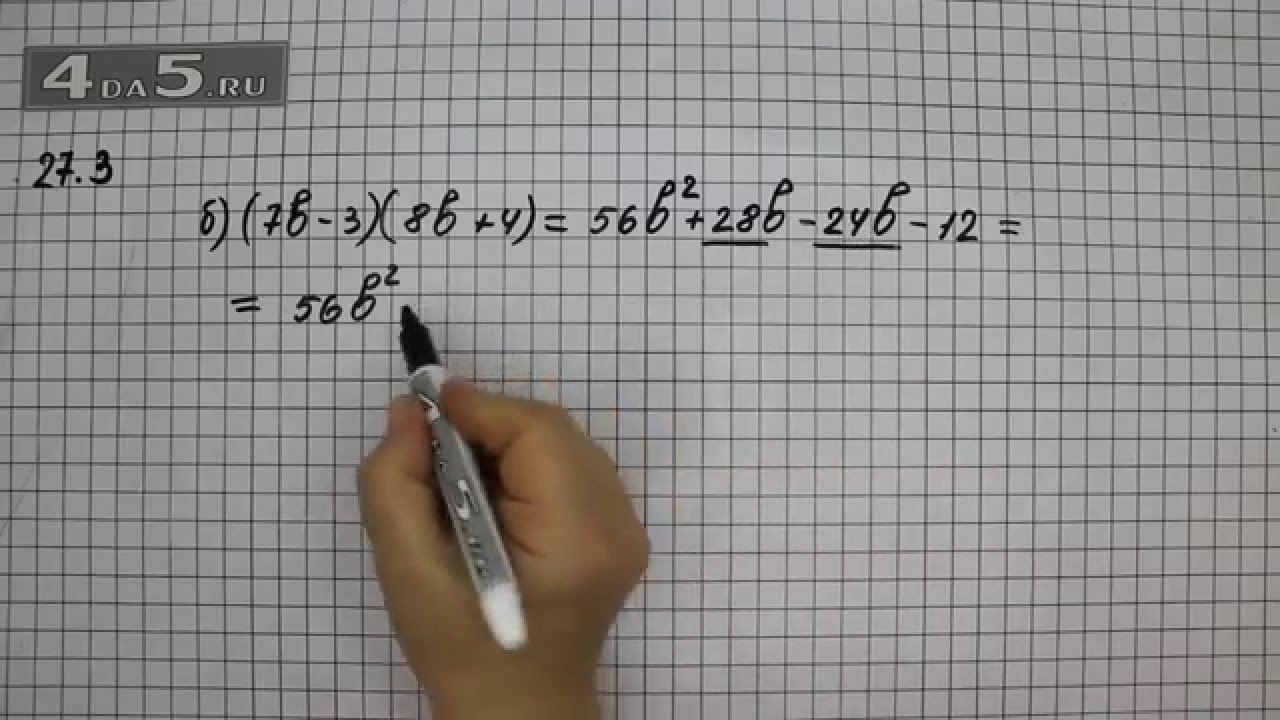 4DA5.RU
27.3
б) (7b - 3)(8b + 4) = 56b² + 28b - 24b - 12 =
= 56b²